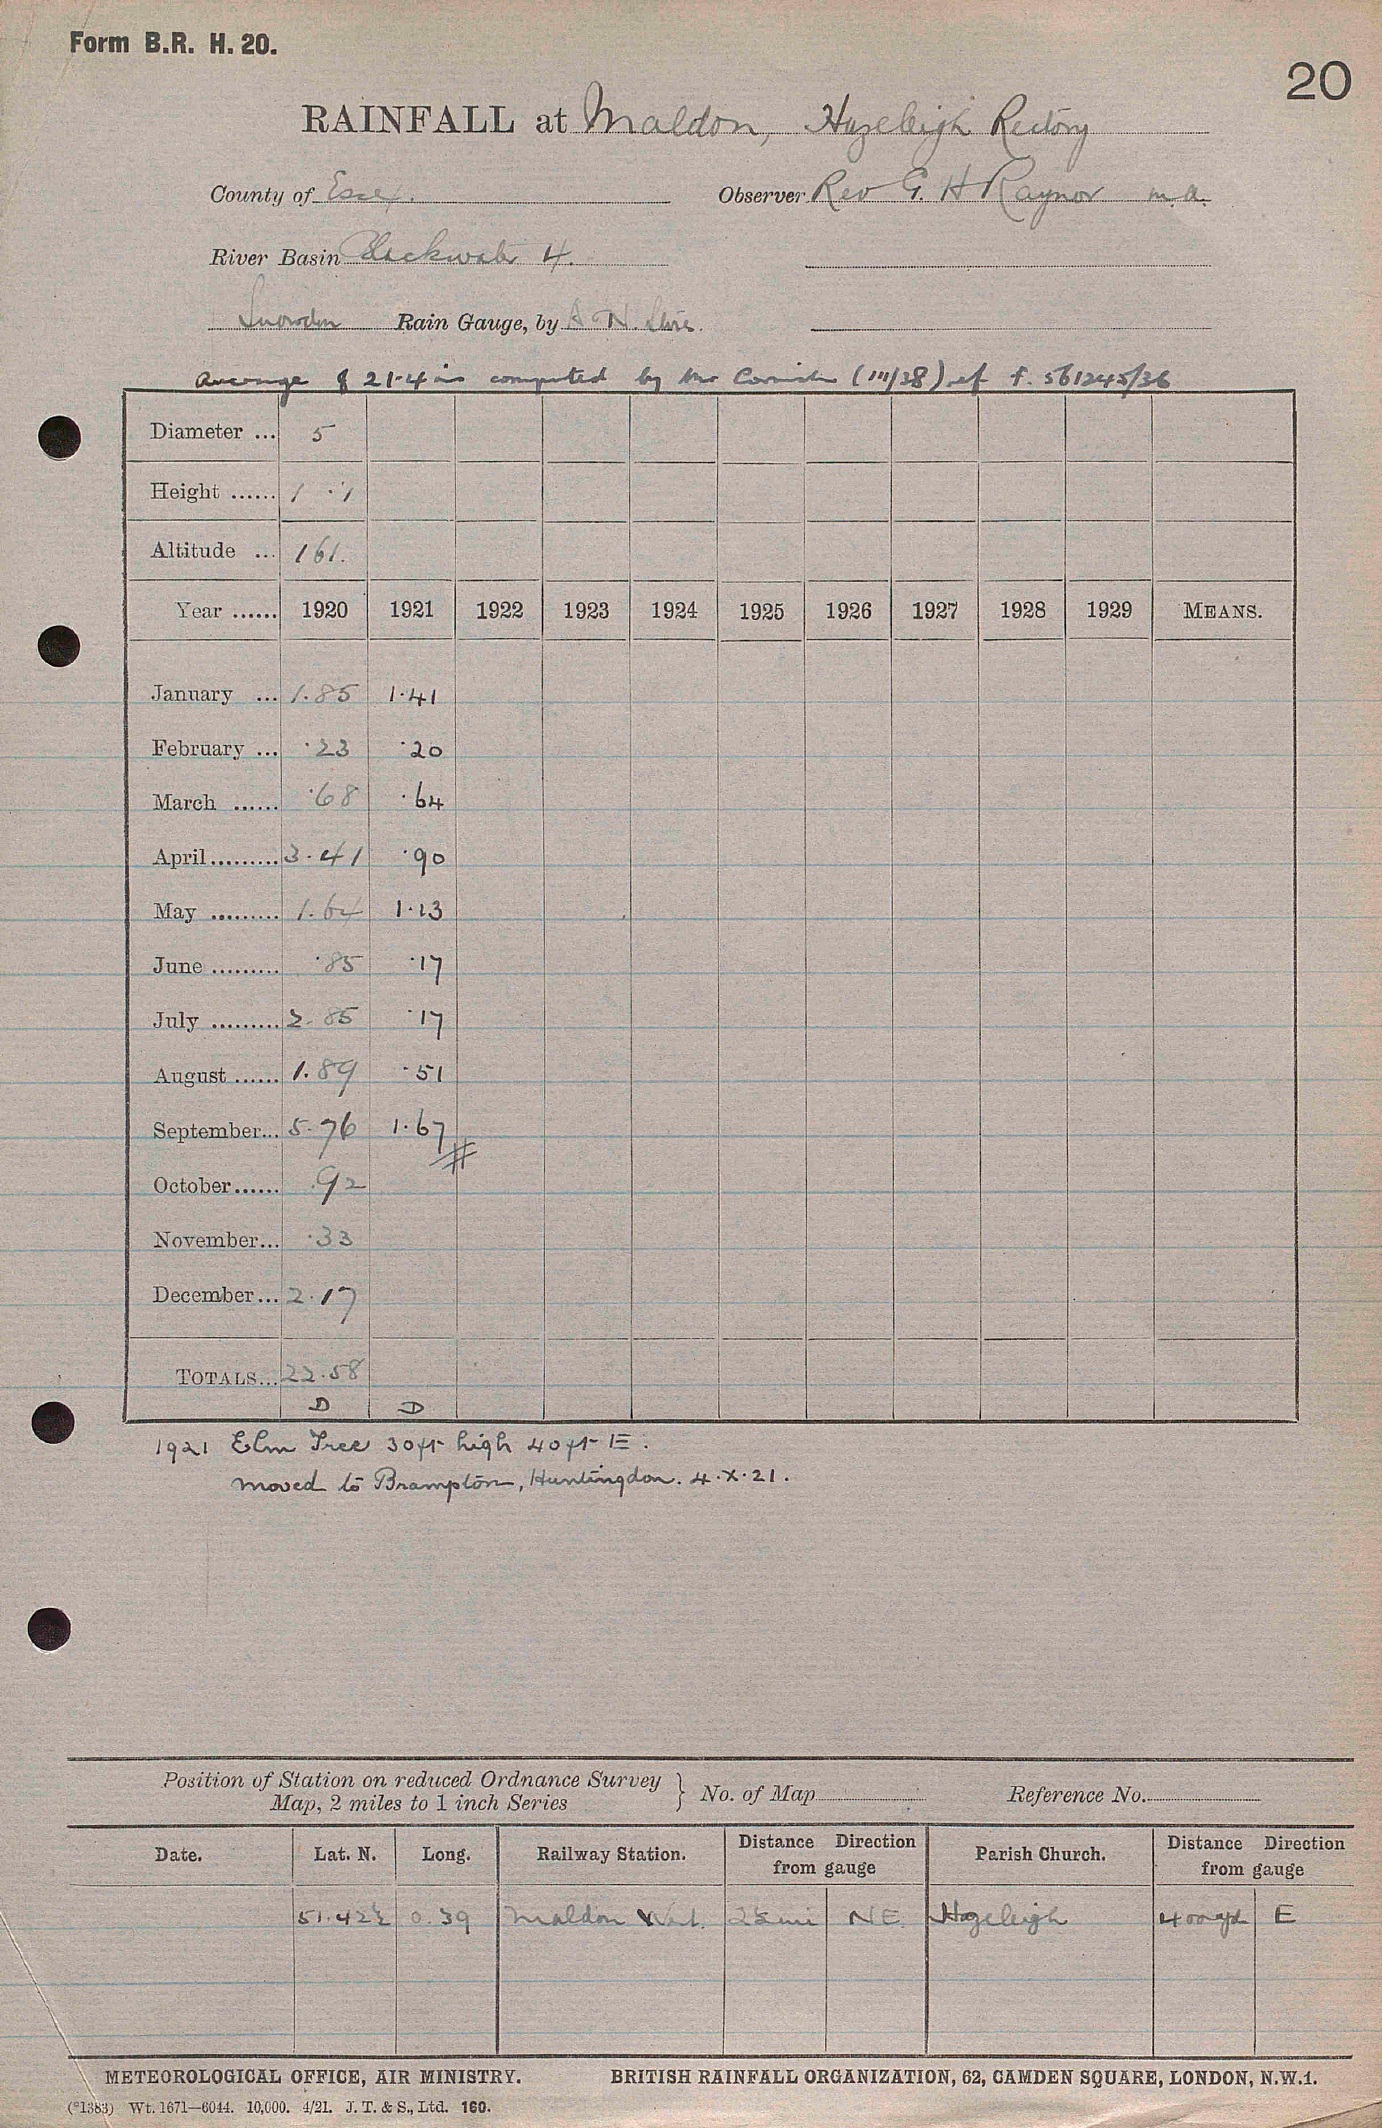 Form B.R. H. 20.
20
RAINFALL at Maldon, Hazeleigh Rectory
County of Essex. Observer Rev G. H Raynor M.A.
River Basin Blackwater 4.
Snowdon Rain Gauge, by
Average of 21.4 in computed by Mr (III/38) cf f. 561245/36
Diameter ... 5
Height ...... 1 .1
Altitude ... 161.
Year ...... 1920 1921 1922 1923 1924 1925 1926 1927 1928 1929 MEANS.
January ... 1.85 1.41
February ... .23 .20
March ...... .68 .64
April......... 3.41 .90
May ......... 1.64 1.13
June ......... .85 .17
July ......... 2.85 .17
August ...... 1.89 .51
September... 5.76 1.67
October...... .92
November... .33
December... 2.17
TOTALS... 22.58
D D
1921 Elm Tree 30ft high 40ft E.
Moved to Brampton, Huntingdon. 4.X.21.
Position of Station on reduced Ordnance Survey
Map, 2 miles to 1 inch Series } No. of Map Reference No.
Date. Lat. N. Long. Railway Station. Distance Direction from gauge Parish Church. Distance Direction from gauge
51.42½ 0.39 Maldon West. NE Hazeleigh 400yd E
METEOROLOGICAL OFFICE, AIR MINISTRY. BRITISH RAINFALL ORGANIZATION, 62, CAMDEN SQUARE, LONDON, N.W.1.
(*1383) Wt. 1671—6044. 10,000. 4/21. J. T. & S., Ltd. 160.